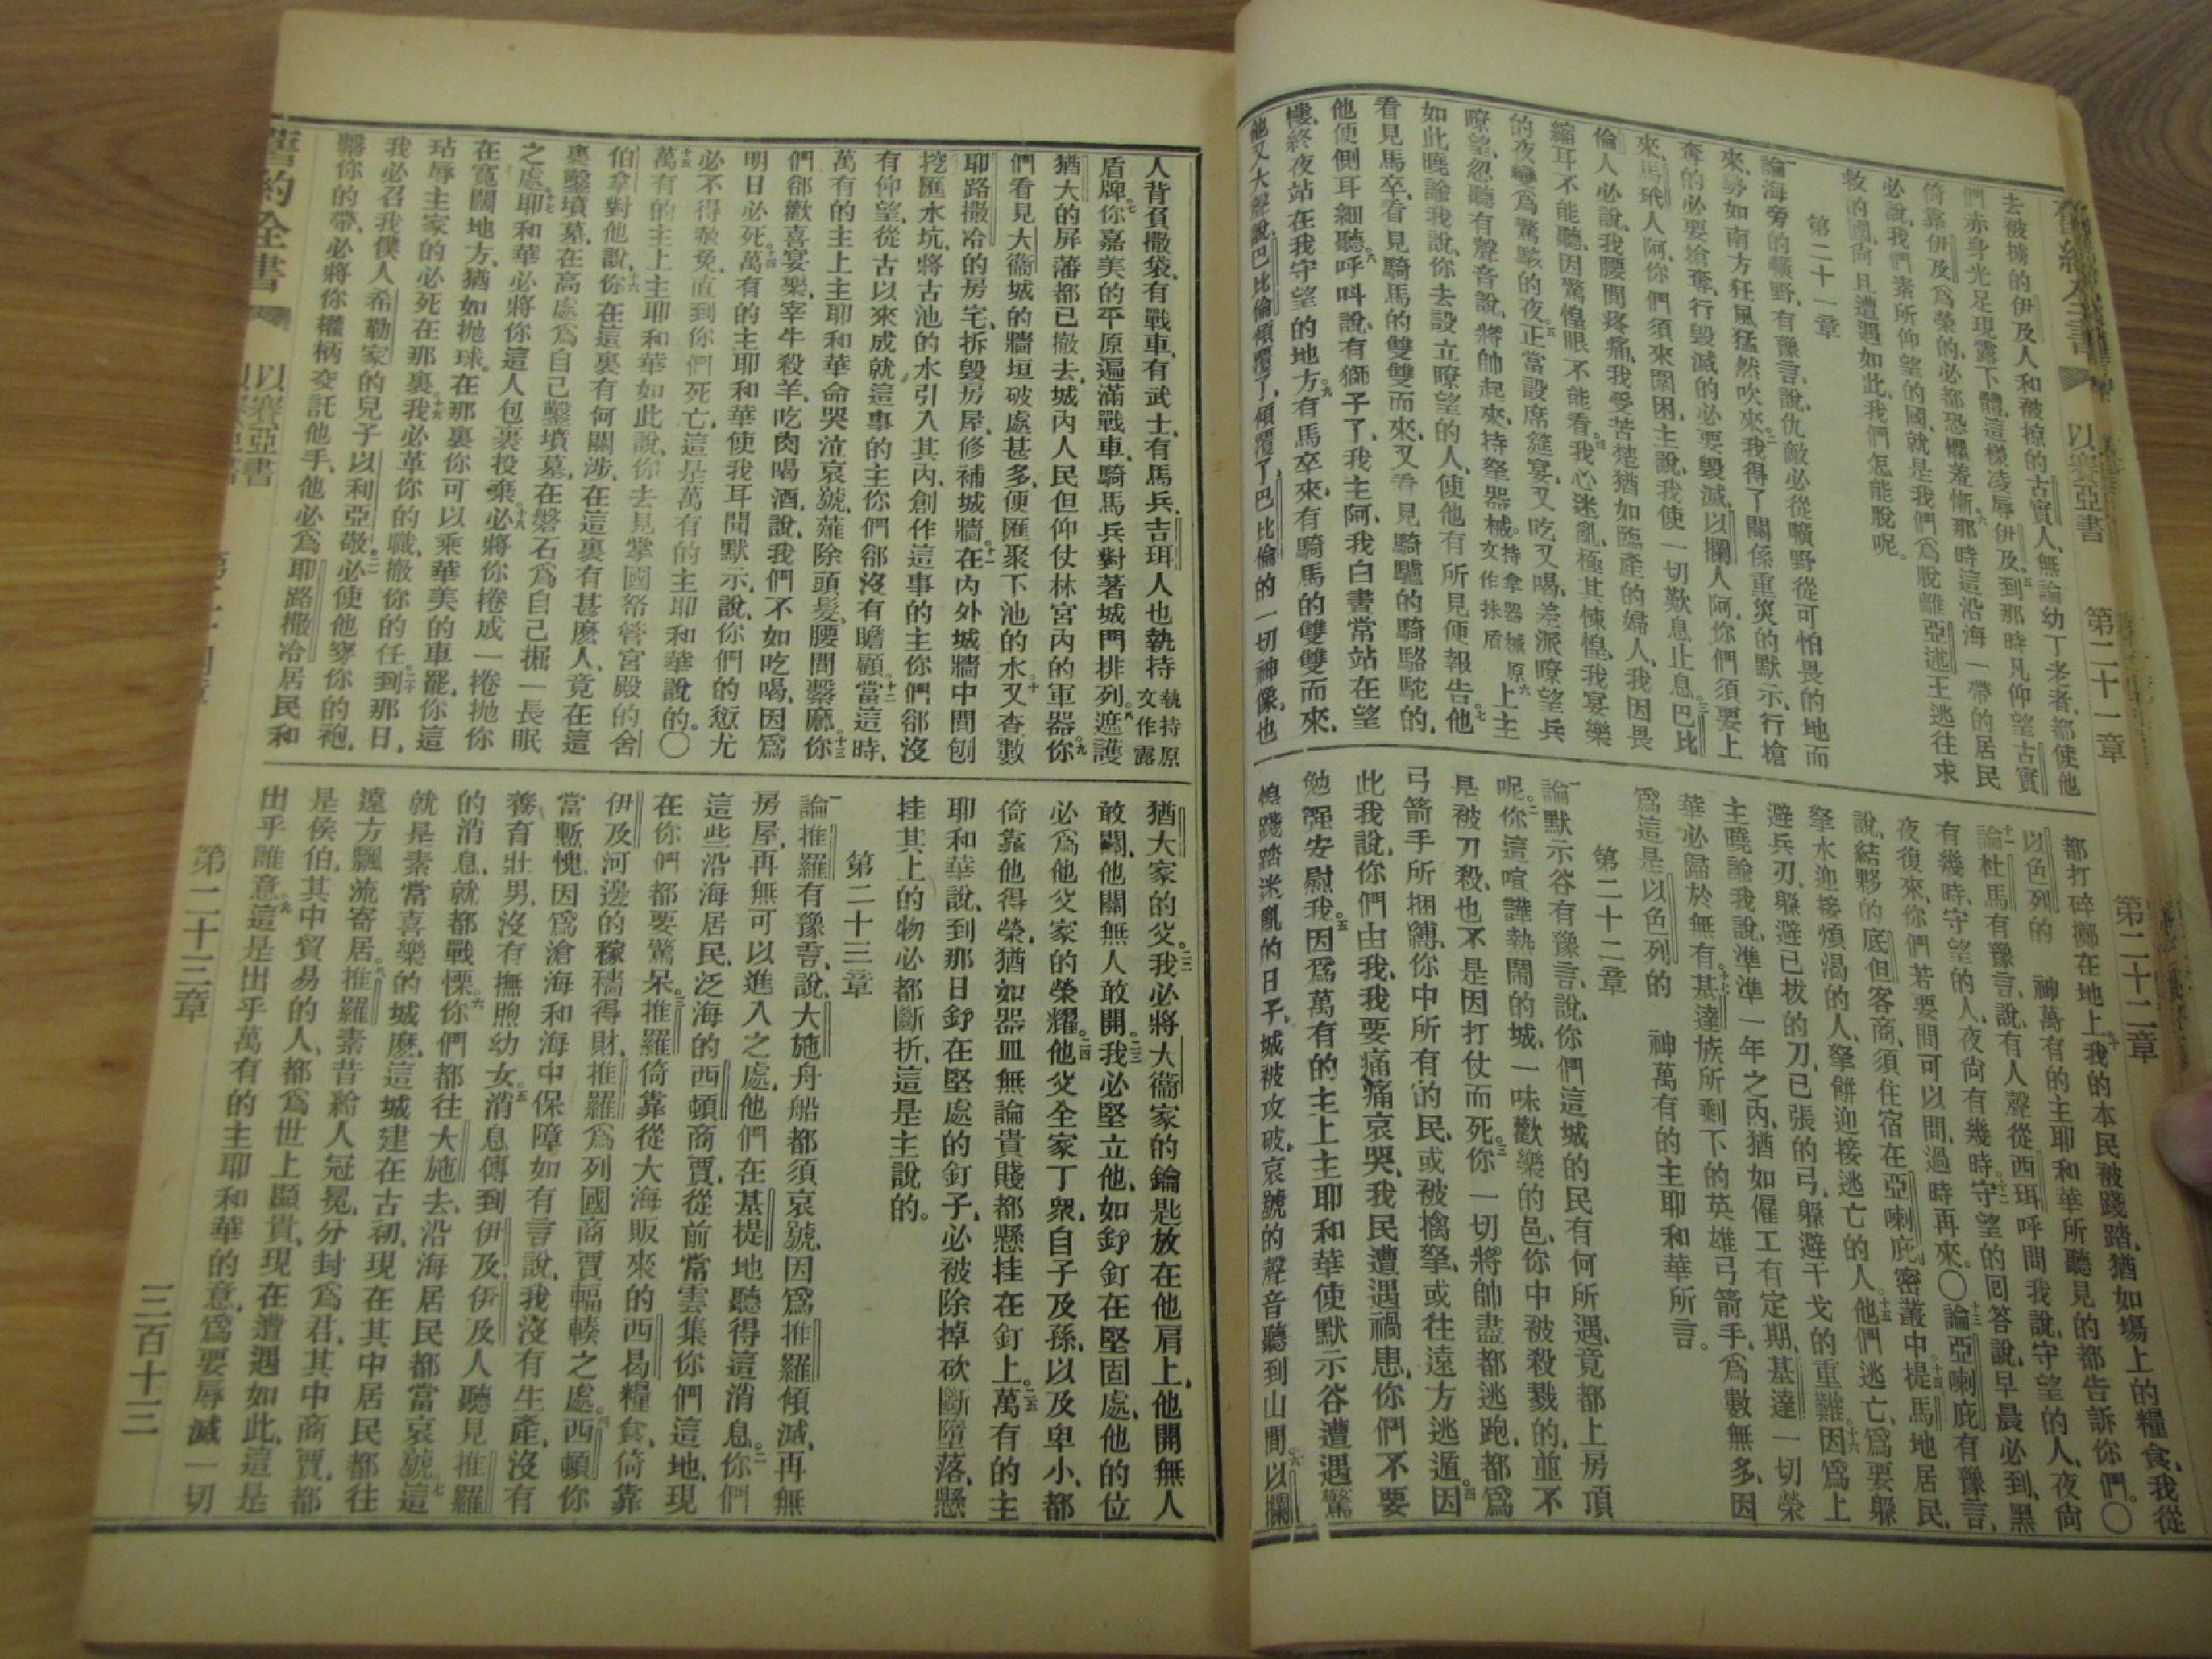 舊約全書 以賽亞書 第二十一章 第二十二章
去被擄的伊及人和被掠的古實人、無論幼丁老者、都使他
們赤身光足現露下體、這樣凌辱伊及、到那時凡仰望古實
倚靠伊及爲榮的、必都恐懼羞慚、那時這沿海一帶的居民
必說、我們素所仰望的國、就是我們爲脫離亞述王逃往求
救的國、尚且遭遇如此、我們怎能脫呢。
第二十一章
論海旁的曠野、有豫言說、仇敵必從曠野從可怕畏的地而
來、勢如南方狂風猛然吹來、我得了關係重災的默示、行搶
奪的必要搶奪、行毀滅的必要毀滅、以攔人阿、你們須要上
來、馬玳人阿、你們須來圍困、主說、我使一切歎息止息。巴比
倫人必說、我腰間疼痛、我受苦楚猶如臨產的婦人、我因畏
縮耳不能聽、因驚惶眼不能看、我心迷亂、極其悚惶、我宴樂
的夜變爲驚駭的夜、正當設席筵宴、又吃又喝、差派瞭望兵
瞭望、忽聽有聲音說、將帥起來、持拏器械。持拏器械原文作抹盾上主
如此曉諭我說、你去設立瞭望的人、使他有所見便報告。他
看見馬卒、看見騎馬的雙雙而來、又看見騎驢的騎駱駝的、
他便側耳細聽。呼呌說、有獅子了、我主阿、我白晝常站在望
樓、終夜站在我守望的地方。有馬卒來、有騎馬的雙雙而來、
他又大聲說、巴比倫傾覆了、傾覆了、巴比倫的一切神像、也
都打碎擲在地上。我的本民被踐踏、猶如場上的糧食、我從
以色列的 神萬有的主耶和華所聽見的都告訴你們。〇
論杜馬有豫言說、有人聲從西珥呼問我說、守望的人、夜尚
有幾時、守望的人、夜尚有幾時。守望的回答說、早晨必到、黑
夜復來、你們若要問可以問、過時再來。〇論亞喇庇有豫言、
說、結夥的底但客商、須住宿在亞喇庇密叢中。提馬地居民、
拏水迎接煩渴的人、拏餅迎接逃亡的人。他們逃亡、爲要躲
避兵刃、躲避已拔的刀、已張的弓、躲避干戈的重難。因爲上
主曉諭我說、準準一年之內、猶如僱工有定期、基達一切榮
華必歸於無有。基達族所剩下的英雄弓箭手、爲數無多、因
爲這是以色列的 神萬有的主耶和華所言。
第二十二章
論默示谷有豫言、說、你們這城的民有何所遇、竟都上房頂
呢。你這喧譁執鬧的城、一味歡樂的邑、你中被殺戮的、並不
是被刀殺、也不是因打仗而死。你一切將帥盡都逃跑、都爲
弓箭手所捆縛、你中所有的民、或被擒拏、或往遠方逃遁。因
此我說、你們由我、我要痛痛哀哭、我民遭遇禍患、你們不要
勉强安慰我。因爲萬有的主上主耶和華使默示谷遭遇驚
惶踐踏迷亂的日子、城被攻破、哀號的聲音聽到山間。以攔
人背負撒袋、有戰車、有武士、有馬兵、吉珥人也執持執持原文作露
盾牌。你嘉美的平原遍滿戰車、騎馬兵對著城門排列。遮護
猶大的屏藩都已撤去、城內人民但仰仗林宮內的軍器。你
們看見大衞城的牆垣破處甚多、便匯聚下池的水。又查數
耶路撒冷的房宅、拆毀房屋、修補城牆。在內外城牆中間刨
挖匯水坑、將古池的水引入其內、創作這事的主你們卻沒
有仰望、從古以來成就這事的主你們卻沒有瞻顧。當這時、
萬有的主上主耶和華命哭泣哀號、薙除頭髮、腰間繫麻。你
們卻歡喜宴樂、宰牛殺羊、吃肉喝酒、說、我們不如吃喝、因爲
明日必死。萬有的主耶和華使我耳聞默示、說、你們的愆尤
必不得赦免、直到你們死亡、這是萬有的主耶和華說的。〇
萬有的主上主耶和華如此說、你去見掌國帑管宮殿的舍
伯拿、對他說、你在這裏有何關涉、在這裏有甚麽人、竟在這
裏鑿墳墓、在高處爲自己鑿墳墓、在磐石爲自己掘一長眠
之處。耶和華必將你這人包裹投棄。必將你捲成一捲拋你
在寬闊地方、猶如拋球。在那裏你可以乘華美的車罷、你這
玷辱主家的必死在那裏。我必革你的職、撤你的任。到那日、
我必召我僕人希勒家的兒子以利亞敬。必使他穿你的袍、
繫你的帶、必將你權柄交託他手、他必爲耶路撒冷居民和
猶大家的父。我必將大衞家的鑰匙放在他肩上、他開無人
敢關、他關無人敢開。我必堅立他、如釘釘在堅固處、他的位
必爲他父家的榮耀。他父全家丁衆、自子及孫、以及卑小、都
倚靠他得榮、猶如器皿無論貴賤都懸挂在釘上。萬有的主
耶和華說、到那日釘在堅處的釘子、必被除掉砍斷墮落、懸
挂其上的物必都斷折、這是主說的。
第二十三章
論推羅有豫言、說、大施舟船都須哀號、因爲推羅傾滅、再無
房屋、再無可以進入之處、他們在基提地聽得這消息。你們
這些沿海居民、泛海的西頓商賈、從前常雲集你們這地、現
在你們都要驚呆。推羅倚靠從大海販來的西曷糧食、倚靠
伊及河邊的稼穡得財、推羅爲列國商賈輻輳之處。西頓你
當慚愧、因爲滄海和海中保障如有言說、我沒有生產、沒有
養育壯男、沒有撫煦幼女。消息傳到伊及、伊及人聽見推羅
的消息、就都戰慄。你們都往大施去、沿海居民都當哀號。這
就是素常喜樂的城麽、這城建在古初、現在其中居民都往
遠方飄流寄居。推羅素昔給人冠冕、分封爲君、其中商賈、都
是侯伯、其中貿易的人、都爲世上顯貴、現在遭遇如此、這是
出乎誰意。這是出乎萬有的主耶和華的意、爲要辱滅一切
舊約全書 以賽亞書 第二十三章 三百十三